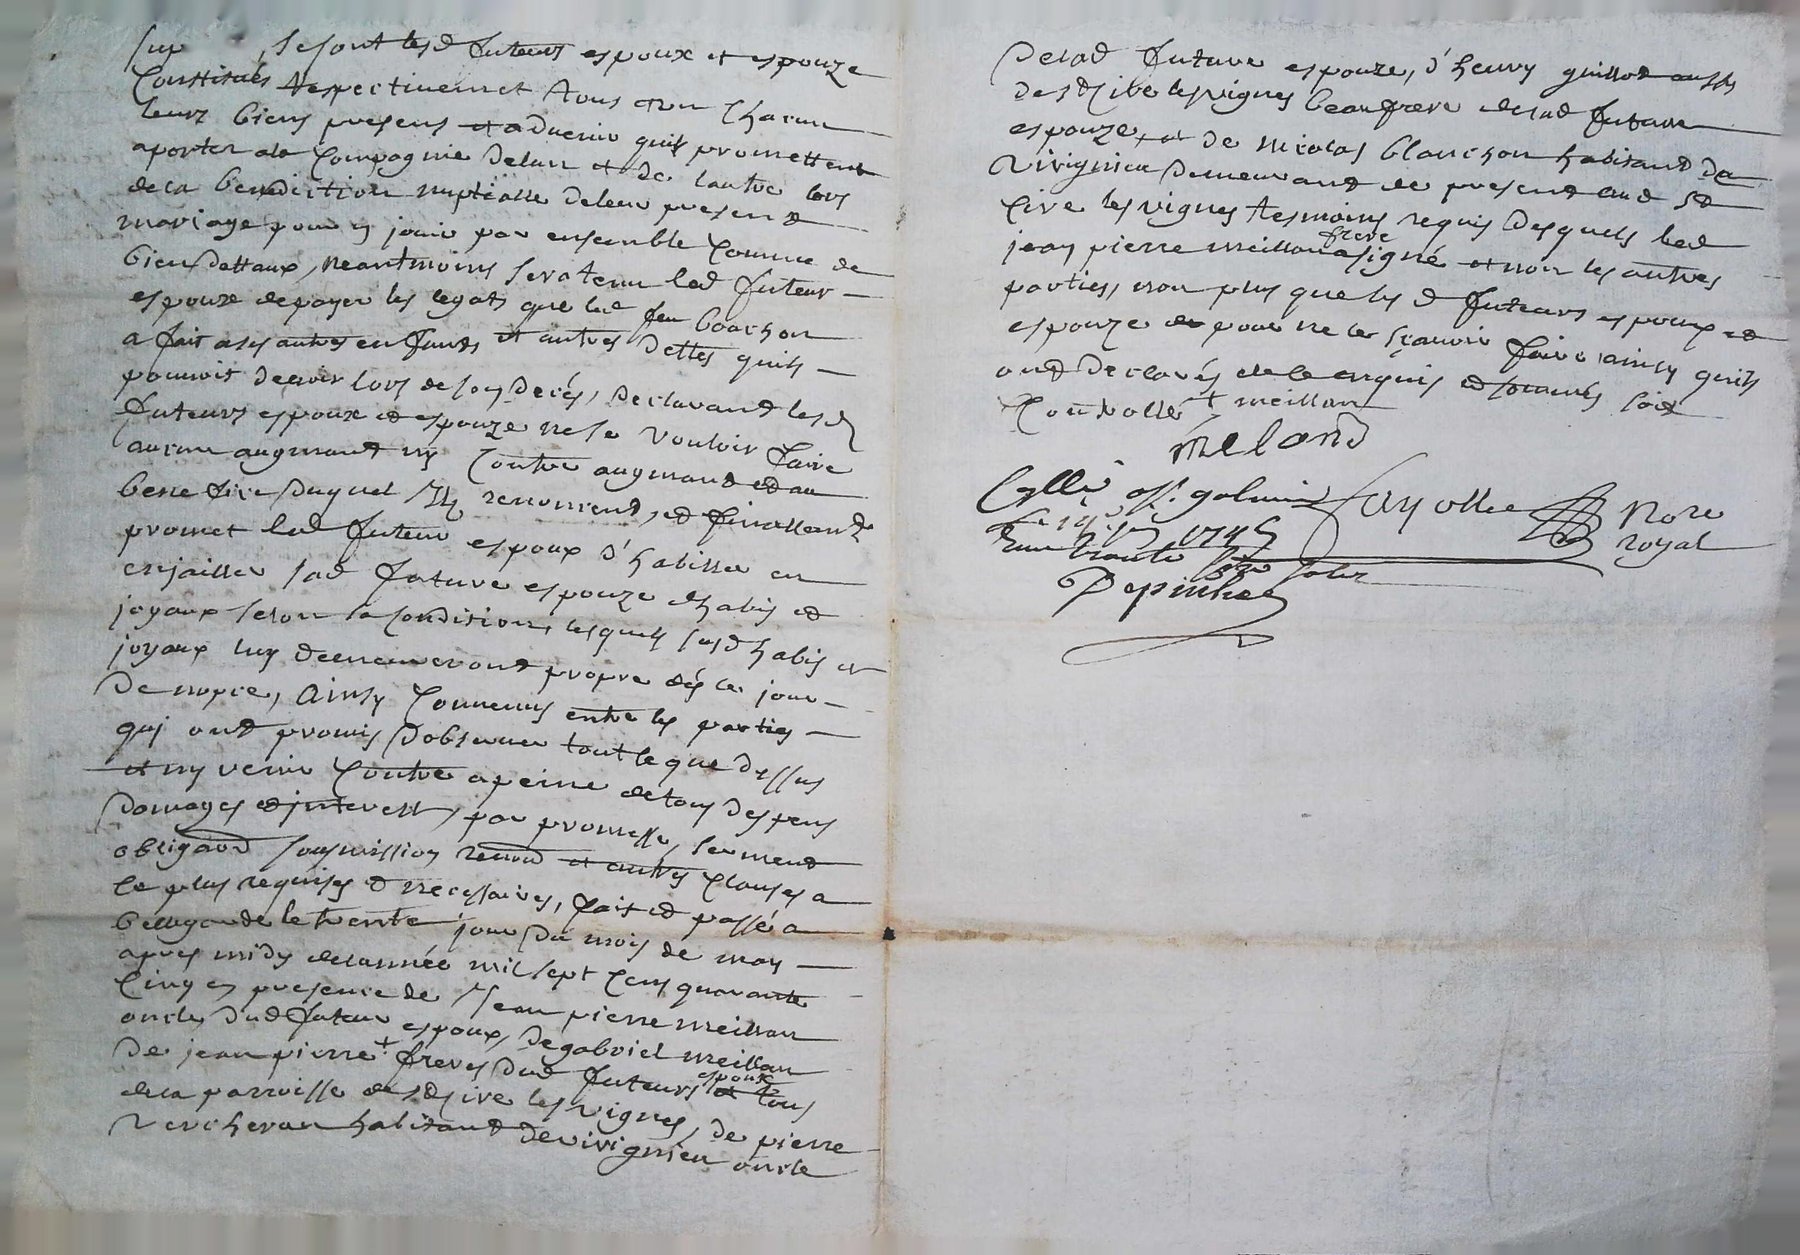 sur , se sont lesd futeurs espoux et espouze
Constitués respectivemet tous et un chacun
leurs biens presens et advenir quils promettent
aporter ala Compagnie delun et de lautre lors
dela benediction nuptialle deleur present
mariage pour en jouir par ensemble comme de
bien dottaux, neantmoins sera tenu led futeur
espoux depayer les legats que led feu bouchon
a fait a ses autres enfants et autres dettes quils
pouvoit devoir lors de son decés, declarant lesd
futeurs espoux et espouze ne se vouloir faire
aucun augmant ny contre augmant et au
benefice duquel ils renoncent, et finallemt
promet led futeur espoux d'habiller en
enjailler sad future espouze dhabis et
joyaux selon sa condition, lesquels susd habis et
joyaux luy demeureront propre dés le jour
de nopce, ainsy convenus entre les parties
qui ont promis dobserver tout le que dessus
et ny venir contre a peine detous despens
domages et interests, par promesse, serment
obligaon soumission renon et autres clauses a
ce plus requises et necessaires, fait et passé a
bellegarde le trente jour du mois de may
apres midy delannée mil sept cens quarante
cinq en presence de Jean pierre meillan
oncle dud futeur espoux, de gabriel meillan
de jean pierre + freres dud futeurs espoux et tous
dela parroisse de st sire les vignes, de pierre
vercheran habitant de virignieu oncle
delad future espouze, d'henry guillot aussy
de st sire les vignes beaufrere delad future
espouze, et de nicolas blanchon habitant de
virignieu demeurant de present aud st
Cire les vignes tesmoins requis desquels led
jean pierre meillan frere a signé et non les autres
parties, non plus que lesd futeurs espoux et
espouze pour ne le sçavoir faire ainsy quils
ont declarés dele enquis et sommés soit
Controllé + meillan
meland
Cyllé
Fayolle Nore
royal
1745
Depinhe